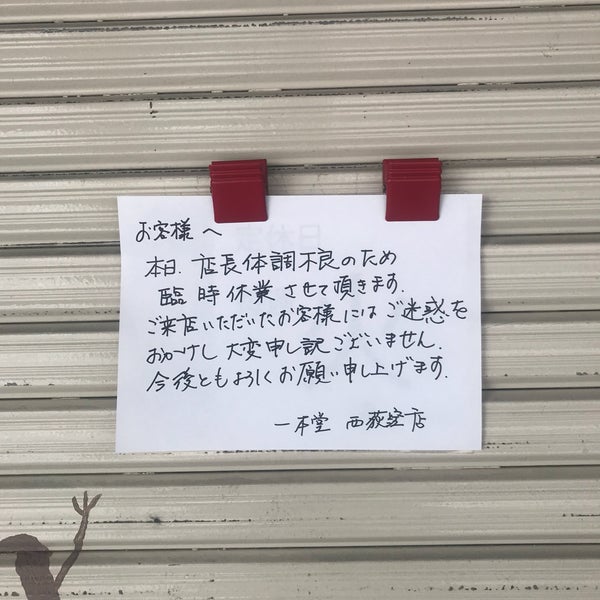 お客様へ
本日、店長体調不良のため
臨時休業させて頂きます。
ご来店いただいたお客様にはご迷惑を
おかけし大変申し訳ございません。
今後ともよろしくお願い申し上げます。
一本堂 西荻窪店